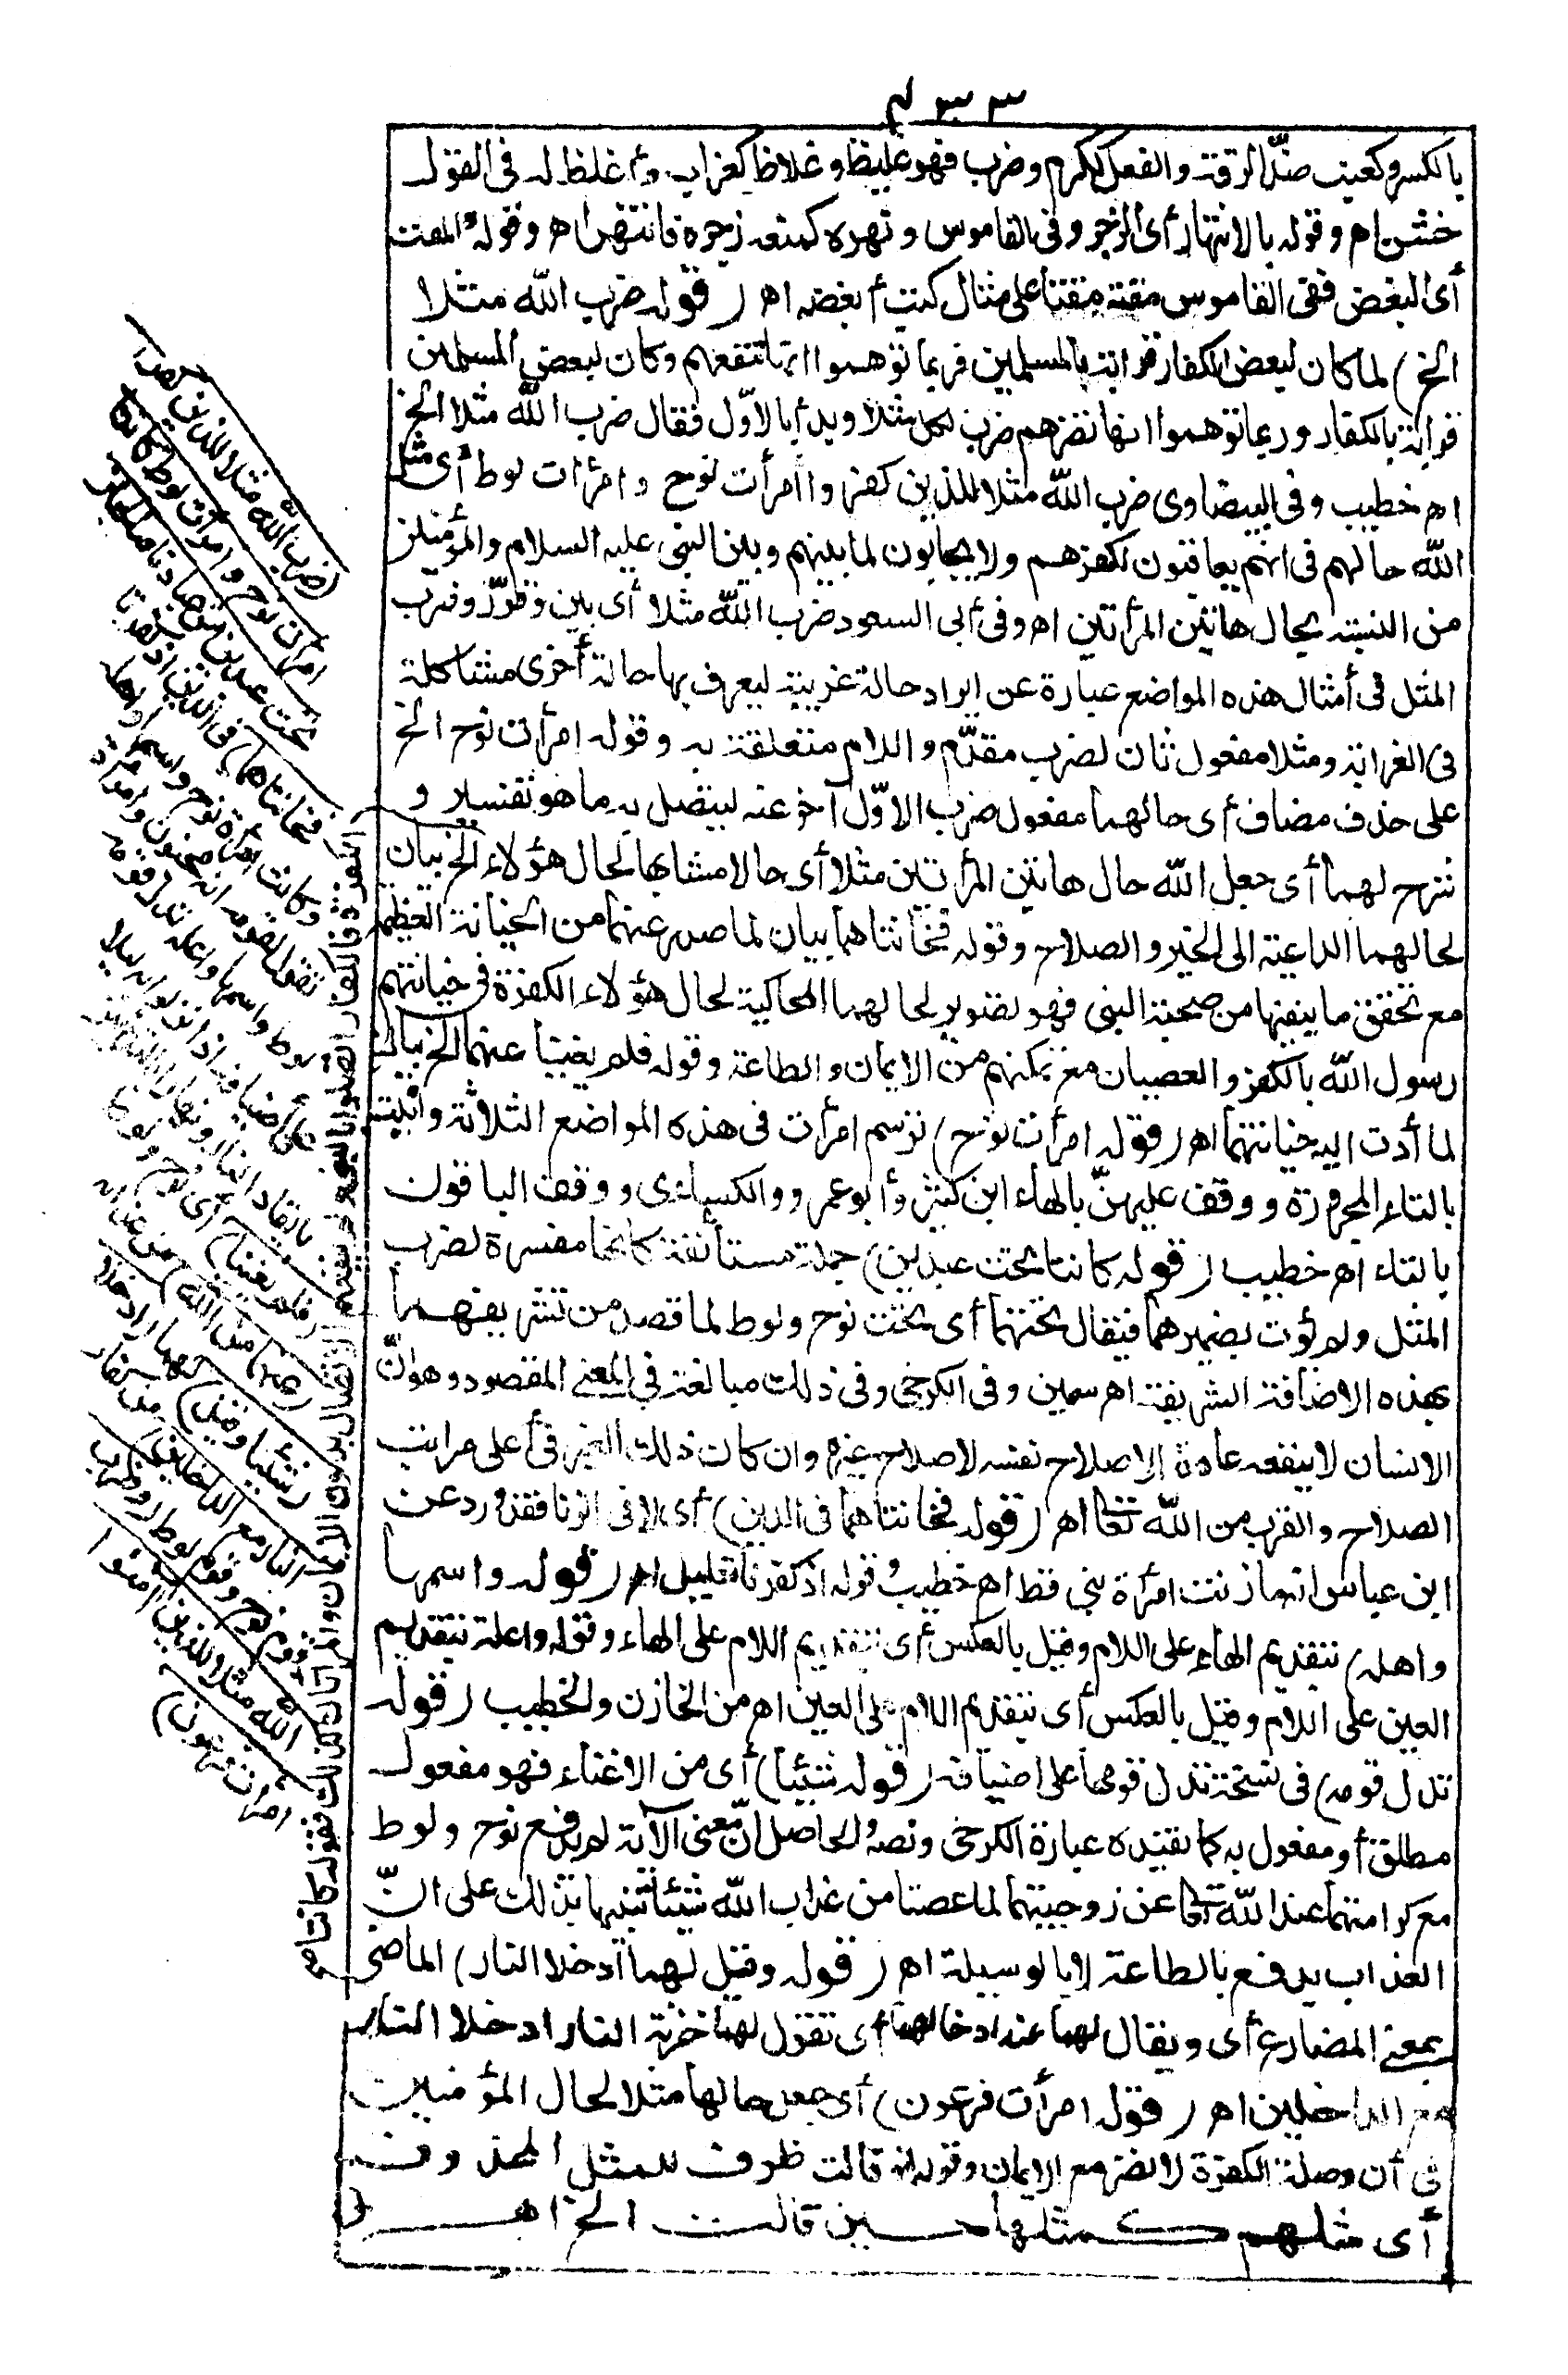 ٤٣٣
بالكسر وكعنب ضدّ الرقة والفعل ككرم وضرب فهو غليظ وغلاظ كغراب وأغلظ له فى القول
خشن اهـ وقوله بالانتهار أى الزجر وفى القاموس ونهره كمنعه زجره فانتهر اهـ وقوله والمقت
أى البغض ففى القاموس مقته مقتا على مثال كبت أبغضه اهـ (قوله ضرب الله مثلا
الخ) لما كان لبعض الكفار قرابة بالمسلمين فربما توهموا انها تنفعهم وكان لبعض المسلمين
قرابة بالكفار وربما توهموا انها تضرهم ضرب لكل مثلا وبدأ بالاوّل فقال ضرب الله مثلا الخ
اهـ خطيب وفى البيضاوى ضرب الله مثلا للذين كفروا امرأت نوح وامرأت لوط أى مثل
الله حالهم فى انهم يعاقبون لكفرهم ولا يحابون لما بينهم وبين النبى عليه السلام والمؤمنين
من النسبة بحال هاتين المرأتين اهـ وفى أبى السعود ضرب الله مثلا أى بين وقرّر وضرب
المثل فى أمثال هذه المواضع عبارة عن ايراد حالة غريبة ليعرف بها حالة أخرى مشاكلة
فى الغرابة ومثلا مفعول ثان لضرب مقدّم واللام متعلقة به وقوله امرأت نوح الخ
على حذف مضاف أى حالهما مفعول ضرب الاوّل آخر عنه ليتصل به ما هو تفسير و
شرح لهما أى جعل الله حال هاتين المرأتين مثلا أى حالا مشابها لحال هؤلاء الخ بيان
لحالهما الداعية الى الخير والصلاح وقوله فخانتاهما بيان لما صدر عنهما من الخيانة العظيمة
مع تحقق ما ينفيها من صحبة النبى فهو تصوير لحالهما المحاكية لحال هؤلاء الكفرة فى خيانتهم
رسول الله بالكفر والعصيان مع تمكنهم من الايمان والطاعة وقوله فلم يغنيا عنهما الخ بيان
لما أدت اليه خيانتهما اهـ (قوله امرأت نوح) ترسم امرأت فى هذه المواضع الثلاثة وابنت
بالتاء المجرورة ووقف عليهنّ بالهاء ابن كثير وأبو عمرو والكسائى ووقف الباقون
بالتاء اهـ خطيب (قوله كانتا تحت عبدين) جملة مستأنفة كأنها مفسرة لضرب
المثل ولم يؤت بضميرهما فيقال تحتهما أى تحت نوح ولوط لما قصد من تشريفهما
بهذه الاضافة الشريفة اهـ سمين وفى الكرخى وفى ذلك مبالغة فى المعنى المقصود وهو انّ
الانسان لا ينفعه عادة الا صلاح نفسه لا صلاح غيره وان كان ذلك الغير فى أعلى مراتب
الصلاح والقرب من الله تعالى اهـ (قوله فخانتاهما فى الدين) أى لا فى الزنا فقد ورد عن
ابن عباس انه ما زنت امرأة نبى قط اهـ خطيب وقوله اذ كفرتا تعليل اهـ (قوله واسمها
واهلة) بتقديم الهاء على اللام وقيل بالعكس أى بتقديم اللام على الهاء وقوله واعلة بتقديم
العين على اللام وقيل بالعكس أى بتقديم اللام على العين اهـ من الخازن والخطيب (قوله
تدل قومه) فى نسخة تدل قومها على اضيافه (قوله شيئا) أى من الاغناء فهو مفعول
مطلق أو مفعول به كما يفيده عبارة الكرخى ونصه والحاصل انّ معنى الآية لم يدفع نوح ولوط
مع كرامتهما عند الله تعالى عن زوجتيهما لما عصتا من عذاب الله شيئا تنبيها بذلك على انّ
العذاب يدفع بالطاعة لا بالوسيلة اهـ (قوله وقيل لهما ادخلا النار) الماضى
بمعنى المضارع أى ويقال لهما عند ادخالهما أى تقول لهما خزنة النار ادخلا النار
مع الداخلين اهـ (قوله امرأت فرعون) أى جعل حالها مثلا لحال المؤمنين
فى أن وصلة الكفرة لا تضر مع الايمان وقوله اذ قالت ظرف للمثل المحذوف
أى مثلهم كمثلها حين قالت الخ اهـ
(ضرب الله مثلا للذين كفروا
امرأت نوح وامرأت لوط كانتا
تحت عبدين من عبادنا صالحين
فخانتاهما) فى الدين اذ كفرتا
وكانت امرأة نوح واسمها واهلة
تقول لقومه انه مجنون وامرأة
لوط واسمها واعلة تدل قومه
على أضيافه اذا نزلوا به ليلا
بايقاد النار ونهارا بالتدخين
(فلم يغنيا) أى نوح ولوط
(عنهما من الله) من عذابه
(شيئا وقيل) لهما (ادخلا
النار مع الداخلين) من كفار
قوم نوح وقوم لوط (وضرب
الله مثلا للذين آمنوا
امرأت فرعون)